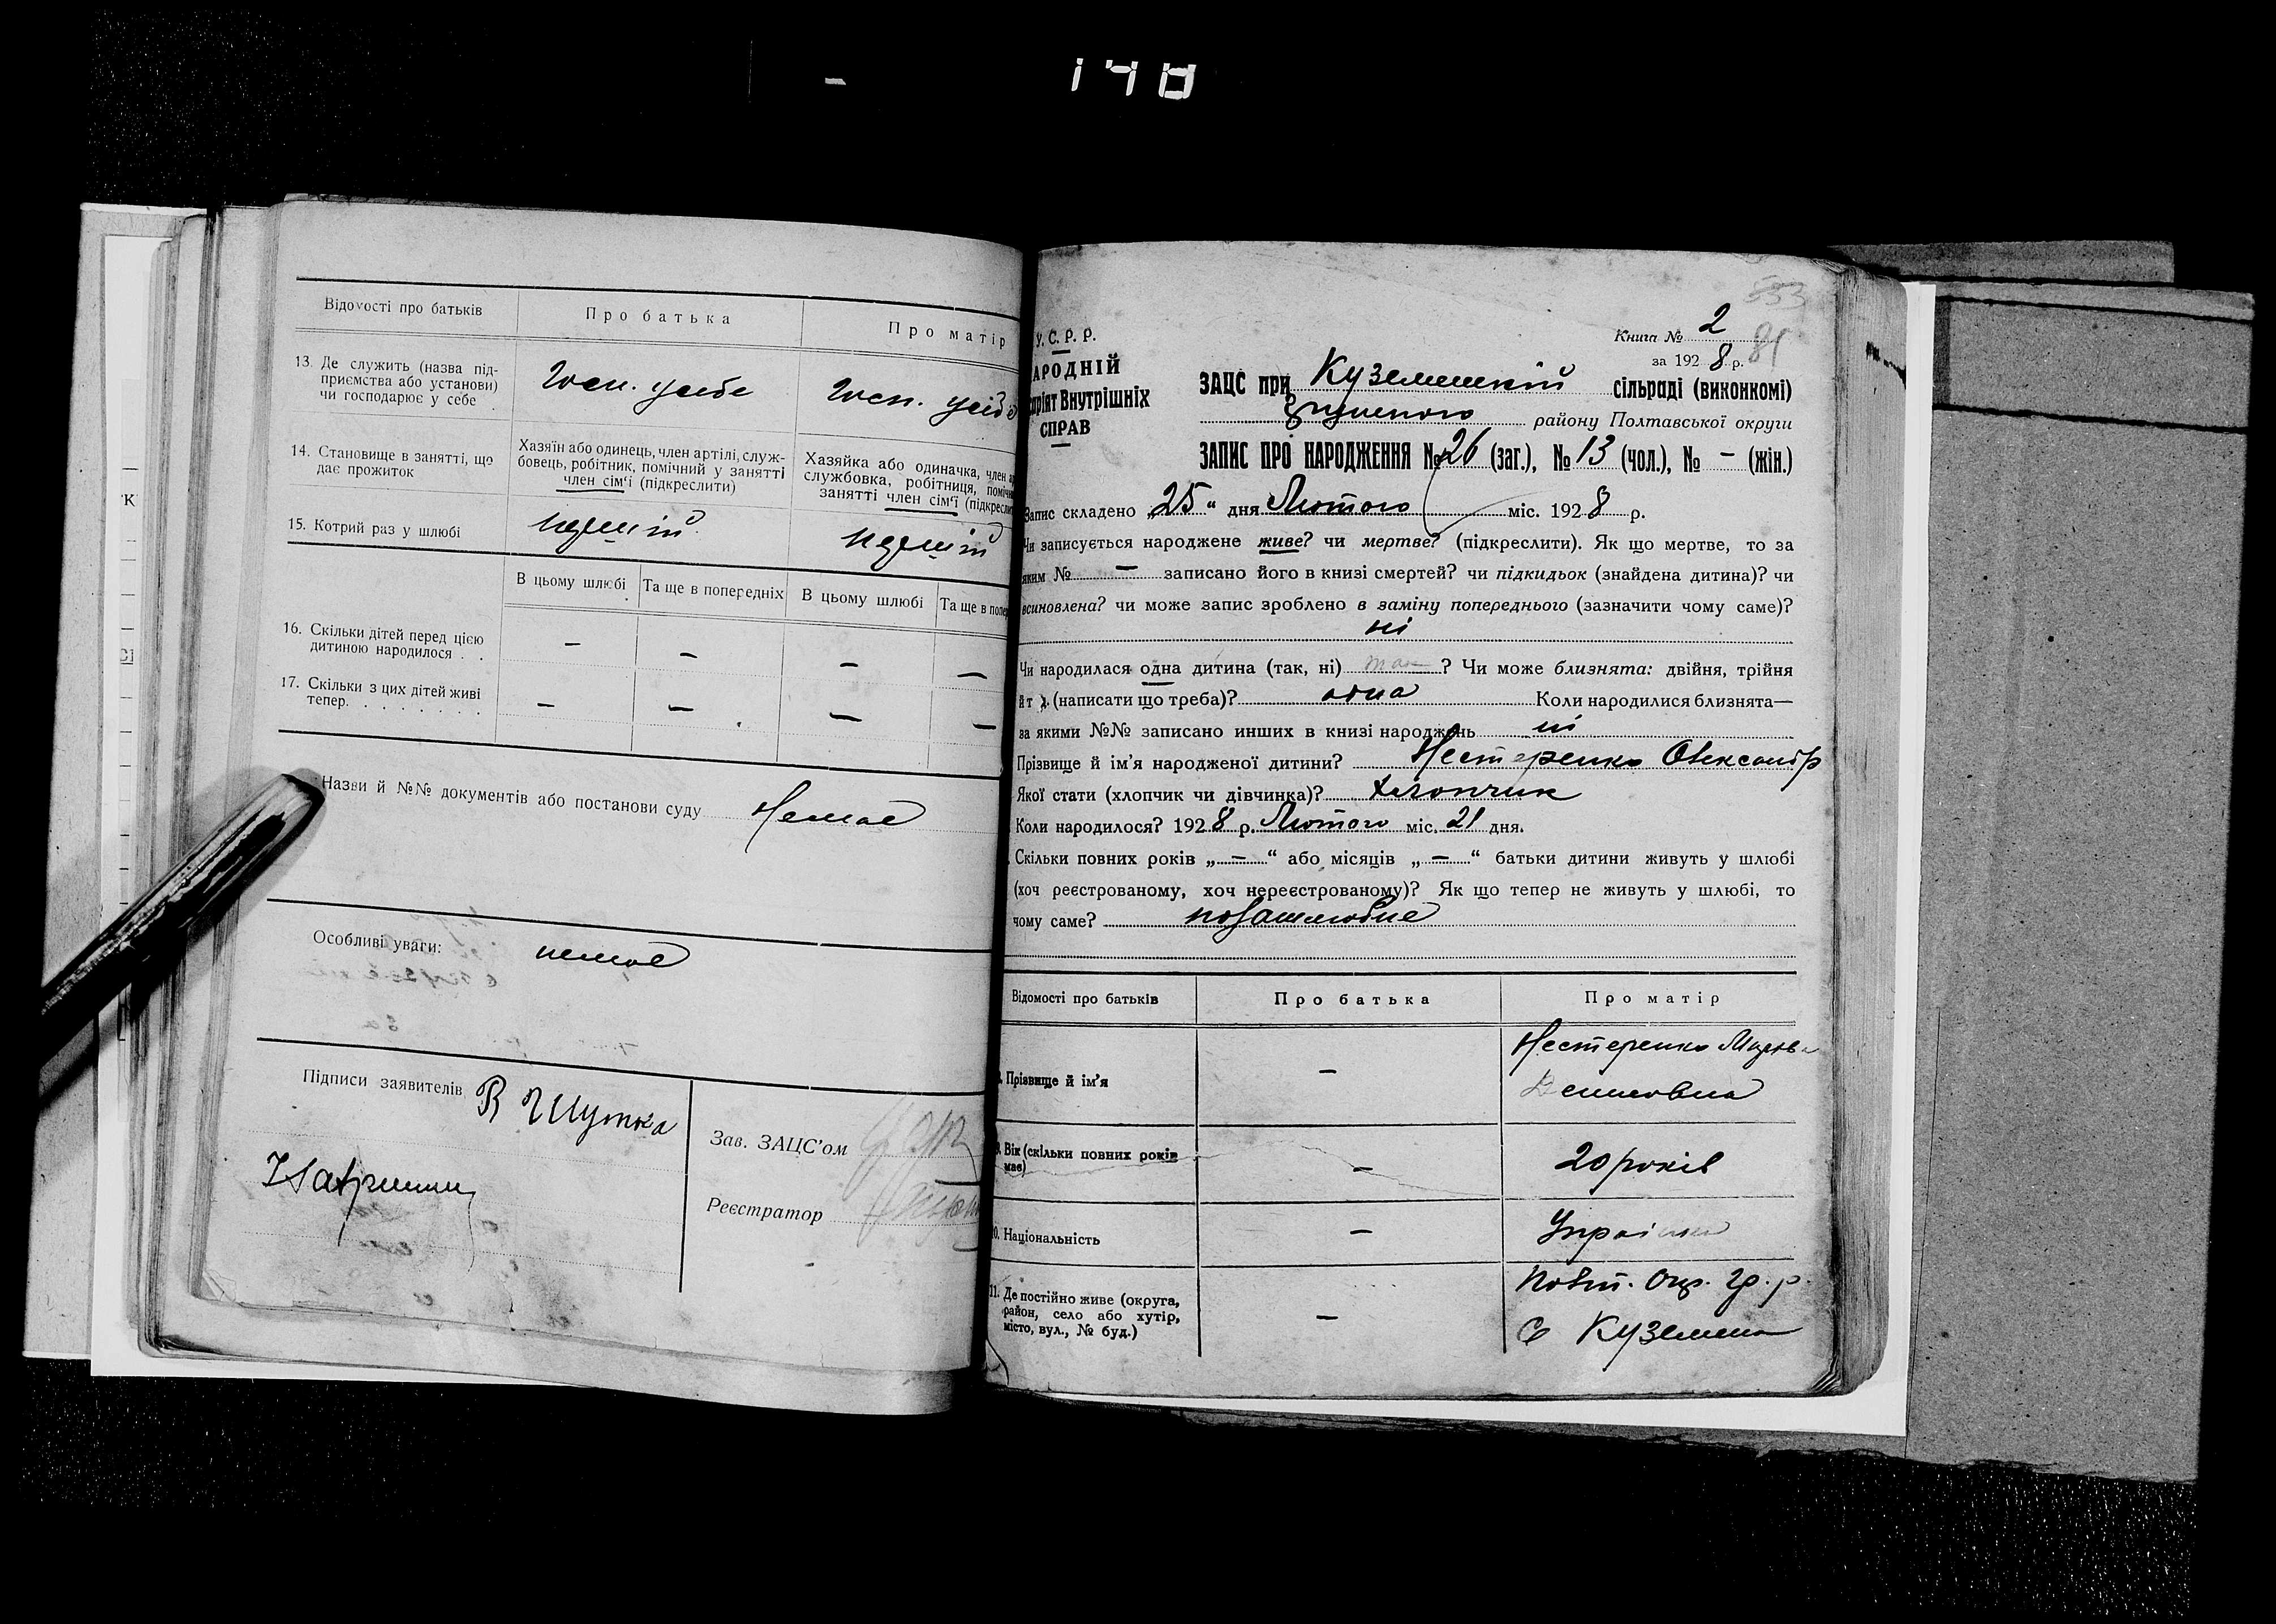 148
Відомості про батьків
Про батька
Про матір
13. Де служить (назва під-
приємства або установи)
чи господарює у себе
Госп. у себе
Госп. у себе
14. Становище в занятті, що
дає прожиток
Хазяїн або одинець, член артілі, служ-
бовець, робітник, помічний у занятті
член сім'ї (підкреслити)
Хазяйка або одиначка, член
службовка, робітниця,
занятті член сім'ї
15. Котрий раз у шлюбі
перший
перший
В цьому шлюбі
Та ще в попередніх
В цьому шлюбі
Та ще в
16. Скільки дітей перед цією
дитиною народилося . .
– – – –
17. Скільки з цих дітей живі
тепер. . . . . . . .
– – – –
Назви й №№ документів або постанови суду Немає
Особливі уваги: немає
Підписи заявителів
Зав. ЗАЦС'ом
Реєстратор
У.С.Р.Р.
АРОДНІЙ
Внутрішніх
СПРАВ
Книга № 2
81
за 1928 р.
ЗАЦС при Куземенській сільраді (виконкомі)
району Полтавської округи
ЗАПИС ПРО НАРОДЖЕННЯ № 26 (заг.), № 13 (чол.), № – (жін.)
Запис складено „25“ дня Лютого міс. 1928 р.
Чи записується народжене живе? чи мертве? (підкреслити). Як що мертве, то за
яким № – записано його в книзі смертей? чи підкидьок (знайдена дитина)? чи
всиновлена? чи може запис зроблено в заміну попереднього (зазначити чому саме)?
ні
Чи народилася одна дитина (так, ні) так ? Чи може близнята: двійня, трійня
й т. д. (написати що треба)? одна Коли народилися близнята—
за якими №№ записано инших в книзі народжень ні
Прізвище й ім'я народженої дитини? Нестеренко Олександр
Якої стати (хлопчик чи дівчинка)? хлопчик
Коли народилося? 1928 р. Лютого міс. 21 дня.
Скільки повних років „–“ або місяців „–“ батьки дитини живуть у шлюбі
(хоч реєстрованому, хоч нереєстрованому)? Як що тепер не живуть у шлюбі, то
чому саме? позашлюбне
Відомості про батьків
Про батька
Про матір
Прізвище й ім'я
–
Нестеренко
9. Вік (скільки повних років
має)
–
20 років
10. Національність
–
Українка
11. Де постійно живе (округа,
район, село або хутір,
місто, вул., № буд.)
–
Полт. Окр. Гр. р.
с Куземен